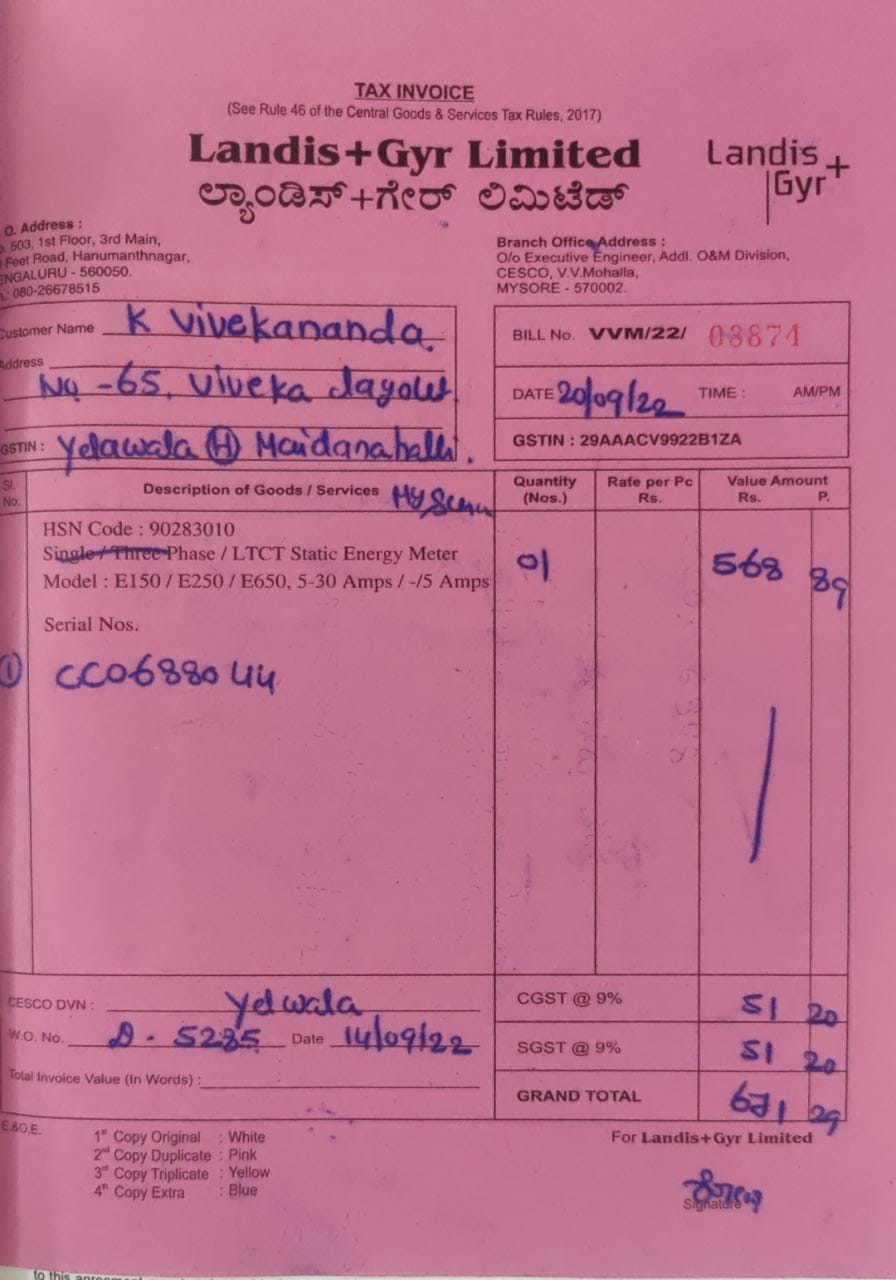 TAX INVOICE
(See Rule 46 of the Central Goods & Services Tax Rules, 2017)
Landis+Gyr Limited
ಲ್ಯಾಂಡಿಸ್+ಗೇರ್ ಲಿಮಿಟೆಡ್
Landis+
Gyr
O. Address :
503, 1st Floor, 3rd Main,
Feet Road, Hanumanthnagar,
NGALURU - 560050.
: 080-26678515
Branch Office Address :
O/o Executive Engineer, Addl. O&M Division,
CESCO, V.V.Mohalla,
MYSORE - 570002.
Customer Name K Vivekananda.
Address
No -65, Viveka
GSTIN : Yelawala (H) Maidanahalli.
BILL No. VVM/22/ 03874
DATE 20/09/22 TIME : AM/PM
GSTIN : 29AAACV9922B1ZA
Sl. No. Description of Goods / Services Quantity (Nos.) Rate per Pc Rs. Value Amount Rs. P.
HSN Code : 90283010
Single / Three Phase / LTCT Static Energy Meter 01 568 89
Model : E150 / E250 / E650, 5-30 Amps / -/5 Amps
Serial Nos.
1 CC0688044
CESCO DVN : Yelwala
W.O. No. D - 5285 Date 14/09/22
Total Invoice Value (In Words) :
CGST @ 9% 51 20
SGST @ 9% 51 20
GRAND TOTAL 671 29
E.&O.E.
1st Copy Original : White
2nd Copy Duplicate : Pink
3rd Copy Triplicate : Yellow
4th Copy Extra : Blue
For Landis+Gyr Limited
Signature
to this agreement